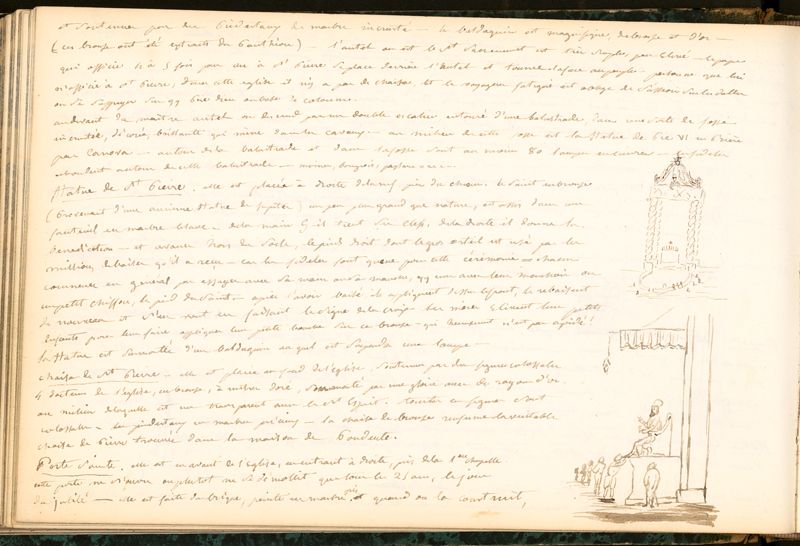 et soutenue par des piédestaux de marbre incrusté — le baldaquin est magnifique, de bronze et d'or —
(ces bronzes ont été extraits du Panthéon) — l'autel où est le St Sacrement est très simple, peu élevé — le pape
qui officie 4 à 5 fois par an à St Pierre se place derrière l'autel et tourne la face au peuple — personne que lui
n'officie à St Pierre, dans cette église il n'y a pas de chaises, et le voyageur fatigué est obligé de s'asseoir sur les dalles
ou de s'appuyer sur de la colonne.
au devant du maître autel on descend par un double escalier entouré d'une balustrade, dans une sorte de fosse
incrustée, dorée, brillante qui mène dans les caveaux — au milieu de cette fosse est la Statue de Pie VI en prière
par Canova — autour de la balustrade et dans la fosse sont au moins 80 lampes en cuivre — les fidèles
abondent autour de cette balustrade — moines, bourgeois, paysans
Statue de St Pierre. elle est placée à droite de la nef près du chœur. le Saint en bronze
(provenant d'une ancienne Statue de Jupiter) un peu plus grand que nature, est assis dans un
fauteuil en marbre blanc — de la main G il tient les clefs, de la droite il donne la
bénédiction — et avance hors du socle, le pied droit dont le gros orteil est usé par les
millions de baisers qu'il a reçu — car les fidèles font queue pour cette cérémonie — chacun
commence en général par essuyer avec sa main ou sa manche, avec leur mouchoir ou
un petit chiffon, le pied du Saint — après l'avoir baisé ils appliquent dessus le front, le rebaisent
de nouveau et s'en vont en faisant le signe de la croix. Les mères élèvent leurs petits
enfants pour leur faire appliquer leur petite bouche sur ce bronze — qui heureusement n'est pas oxidé!!
la Statue est surmontée d'un baldaquin auquel est suspendu une lampe —
chaise de St Pierre — elle est placée au fond de l'église, soutenue par des figures colossales
4 docteurs de l'église, en bronze, à mitres doré, surmonté par une gloire avec des rayons d'or
au milieu de laquelle est un transparent avec le St Esprit. toutes ces figures sont
colossales — les piédestaux en marbre précieux — la chaise de bronze renferme la véritable
chaise de Pierre trouvée dans la maison de
Porte Sainte. elle est en avant de l'Eglise, en entrant à droite, près de la 1ère chapelle
cette porte ne s'ouvre ou plutôt ne se démollit que tous les 25 ans, le jour
du jubilé — elle est faite de brique, peinte en marbre et quand on la construit,